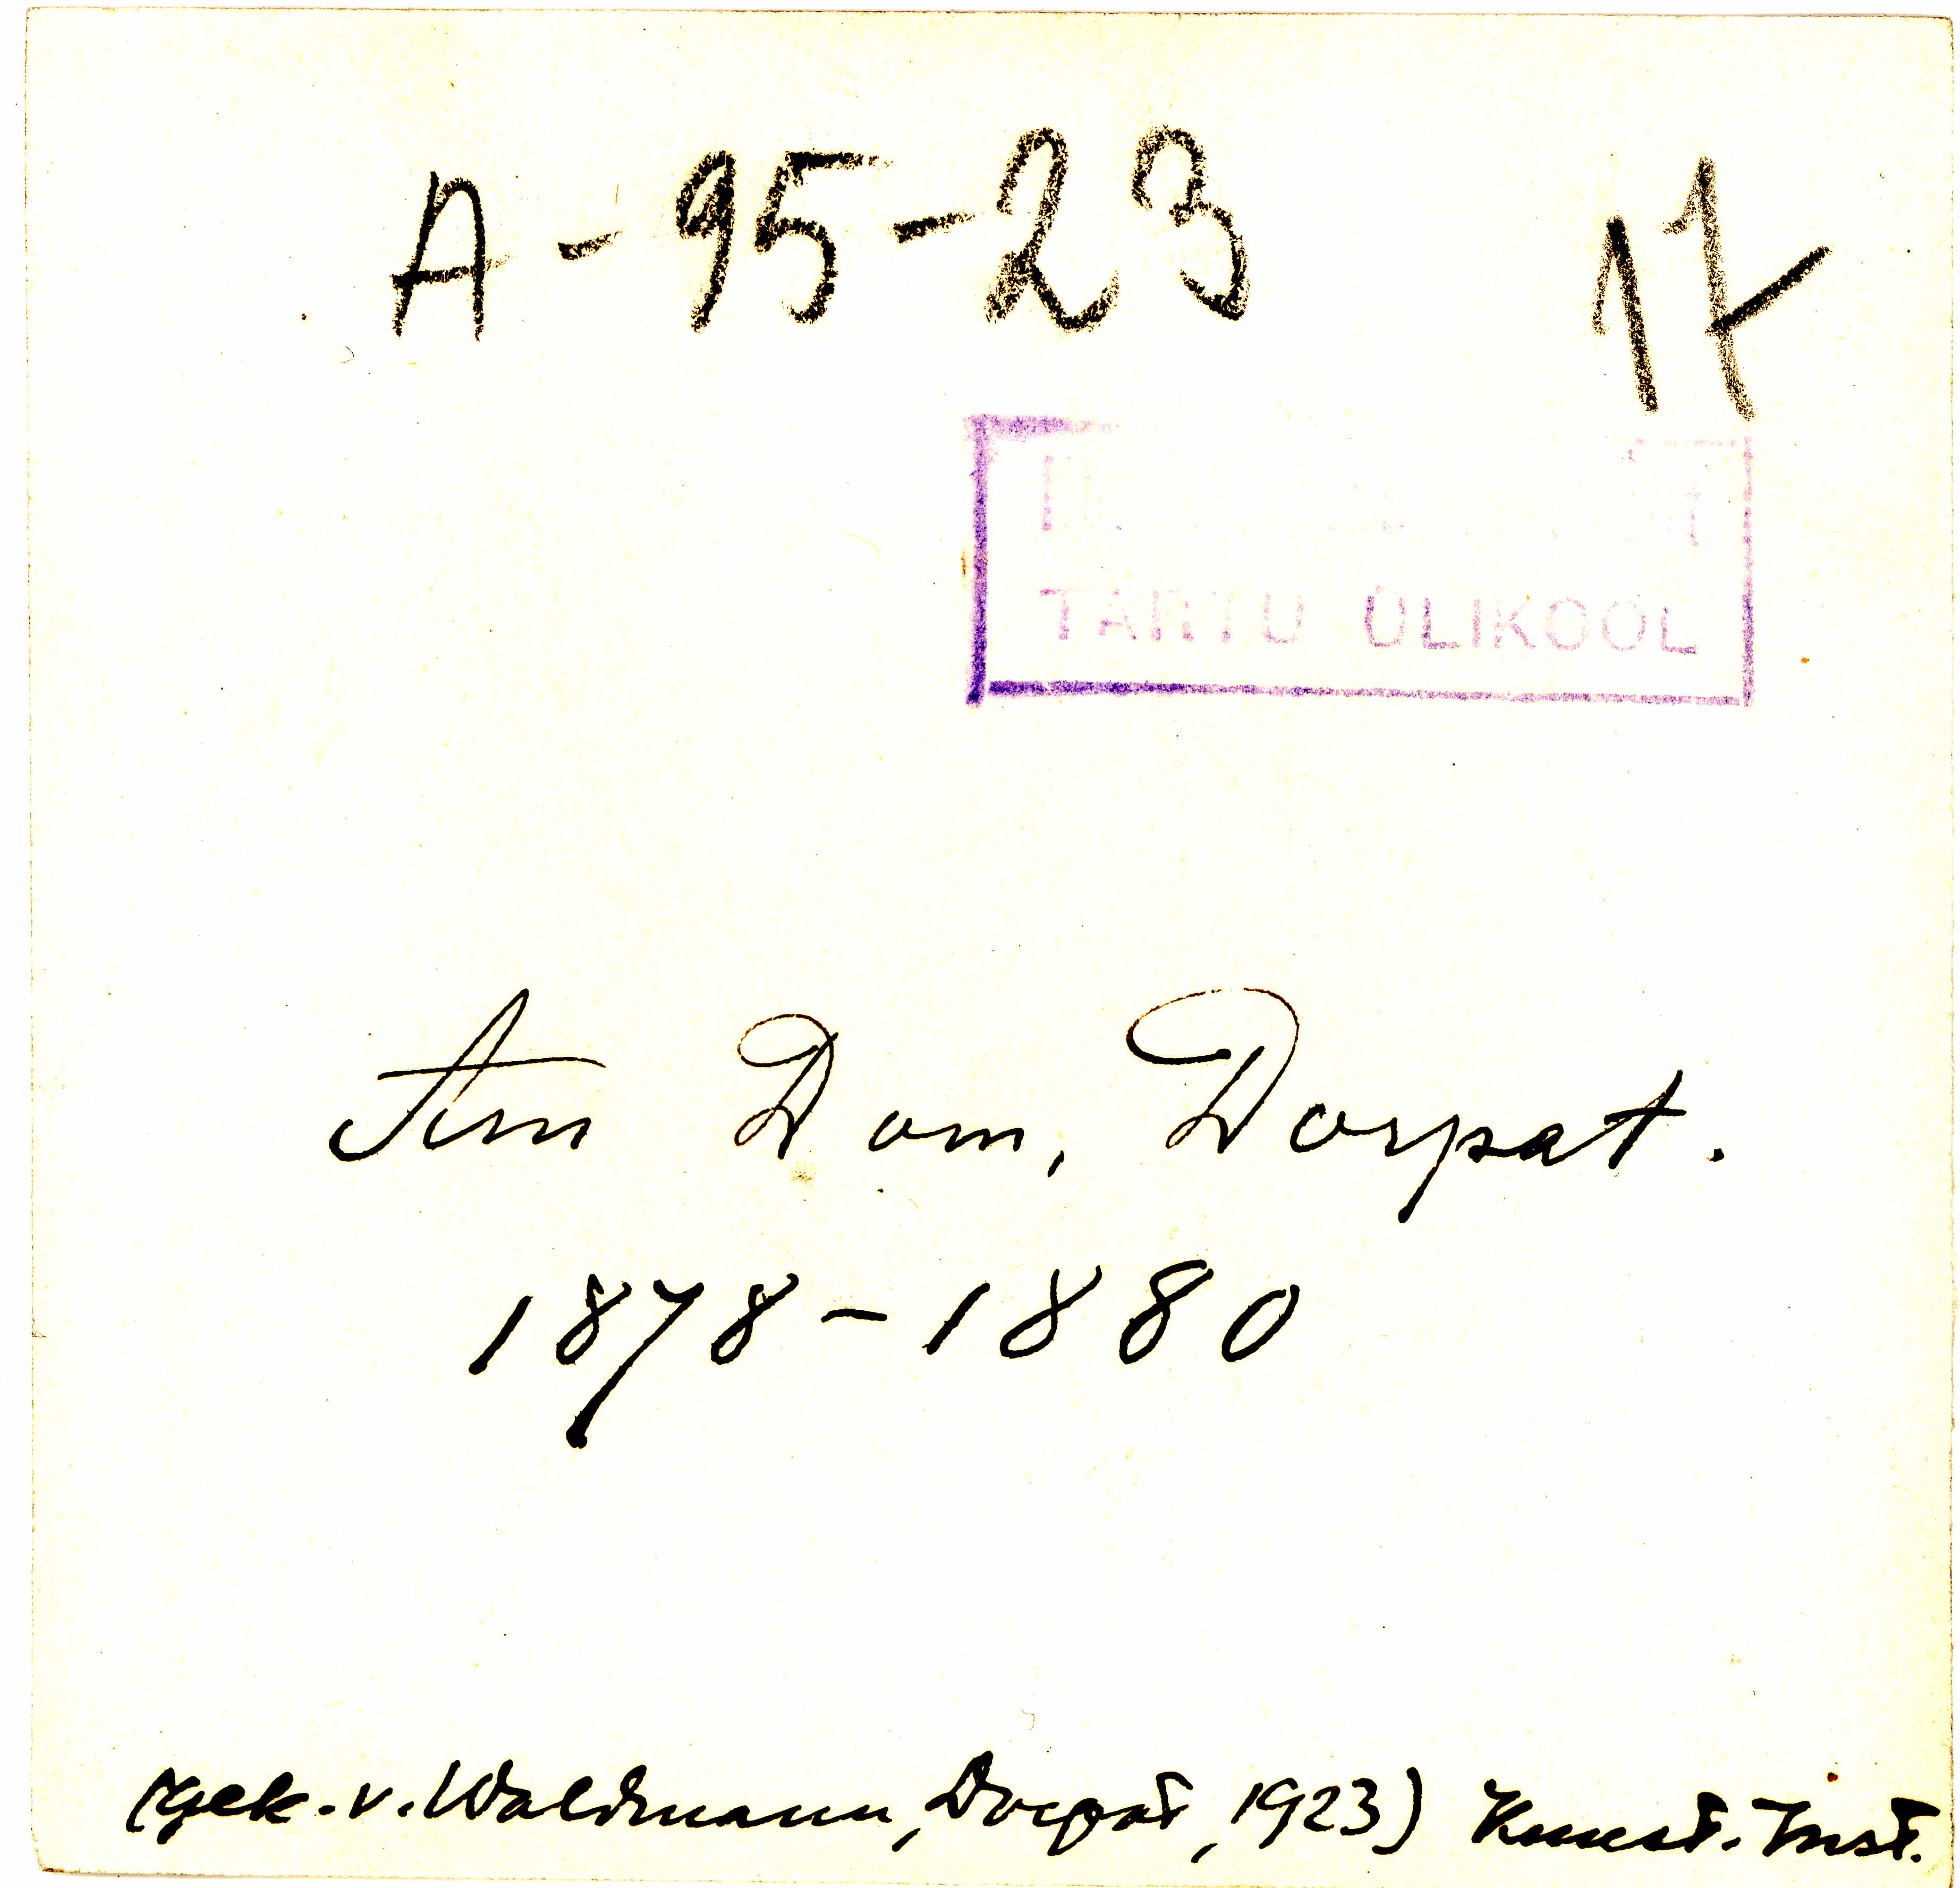 A-95-23
17
TARTU ÜLIKOOL
Am Dom, Dorpat.
1878-1880
(gek. v. Waldmann, Dorpat, 1923) Kunst. Inst.